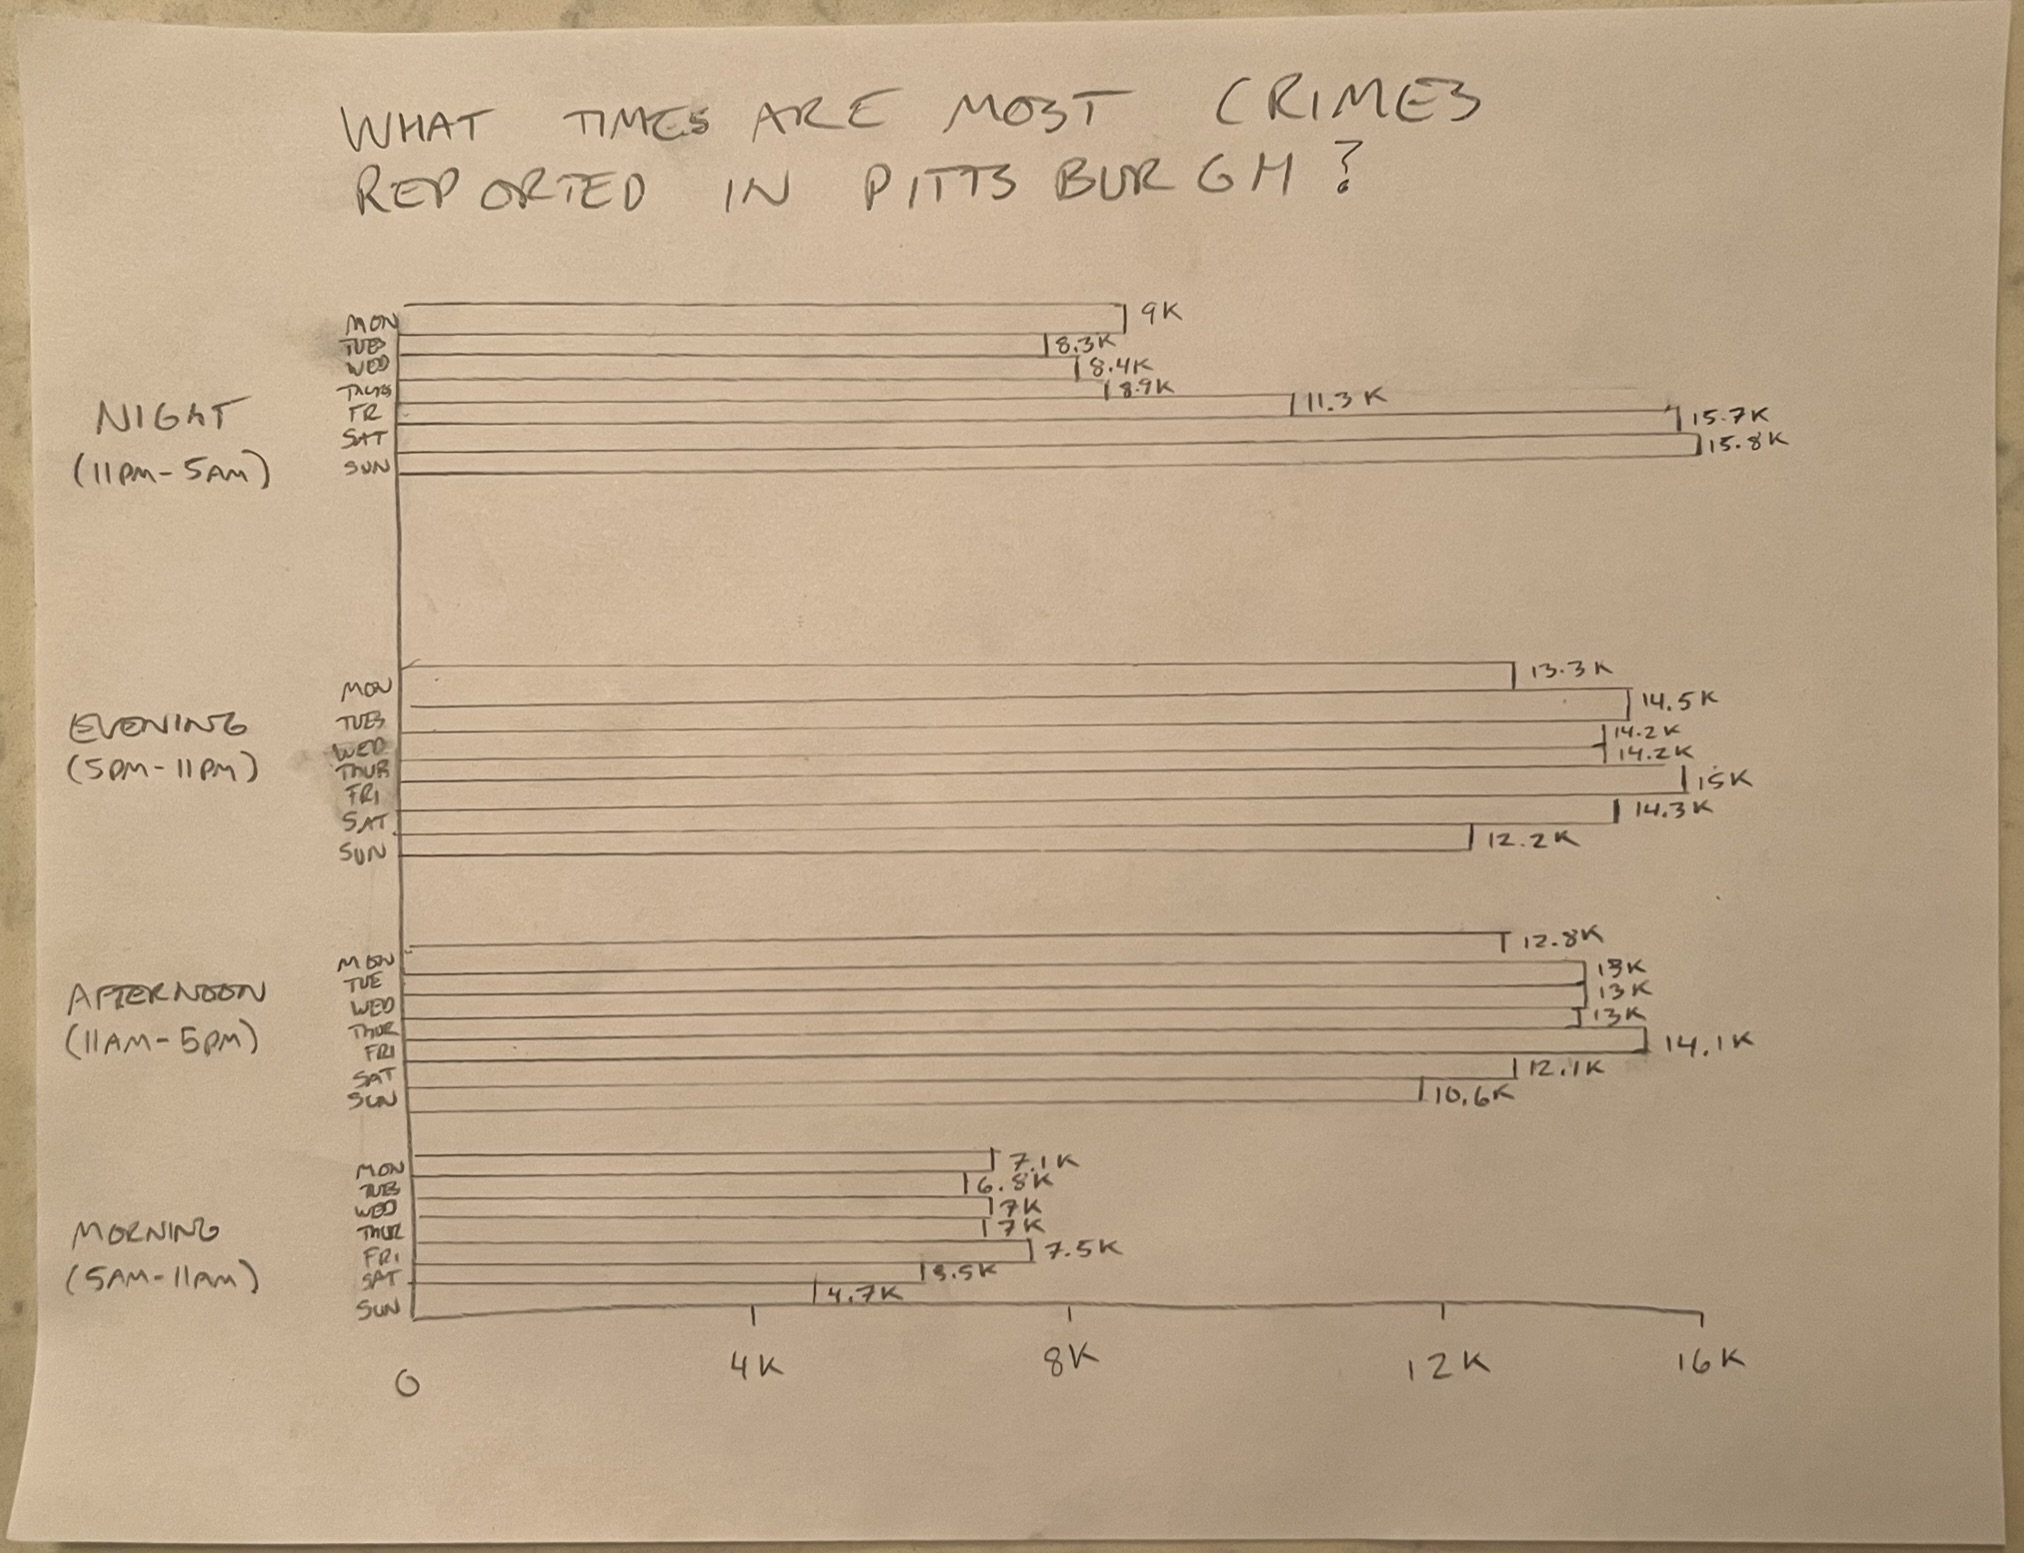 WHAT TIMES ARE MOST CRIMES
REPORTED IN PITTSBURGH?
NIGHT
(11PM-5AM)
MON 9K
TUES 8.3K
WED 8.4K
THURS 8.9K
FR 11.3K
SAT 15.7K
SUN 15.8K
EVENING
(5PM-11PM)
MON 13.3K
TUES 14.5K
WED 14.2K
THUR 14.2K
FRI 15K
SAT 14.3K
SUN 12.2K
AFTERNOON
(11AM-5PM)
MON 12.8K
TUE 13K
WED 13K
THUR 13K
FRI 14.1K
SAT 12.1K
SUN 10.6K
MORNING
(5AM-11AM)
MON 7.1K
TUES 6.8K
WED 7K
THUR 7K
FRI 7.5K
SAT
SUN 4.7K
0 4K 8K 12K 16K